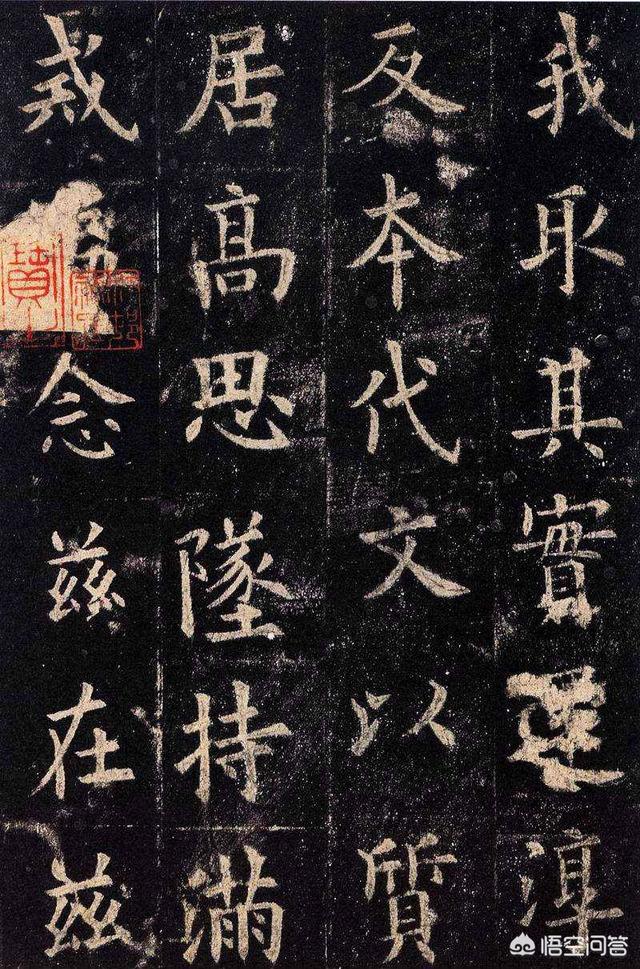 我取其實還淳
反本代文以質
居高思墜持滿
戒念兹在兹
悟空问答